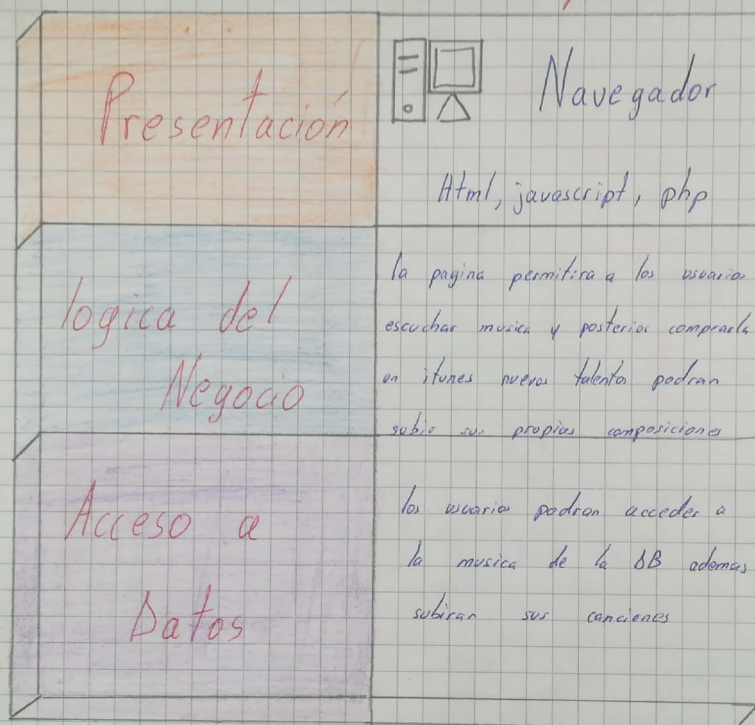 Presentación
Navegador
Html, javascript, php
logica del
Negocio
la pagina permitira a los usuario
escuchar musica y posterior comprarla
en itunes nuevos talentos podran
subir sus propias composiciones
Acceso a
Datos
los usuarios podran acceder a
la musica de la DB ademas
subiran sus canciones